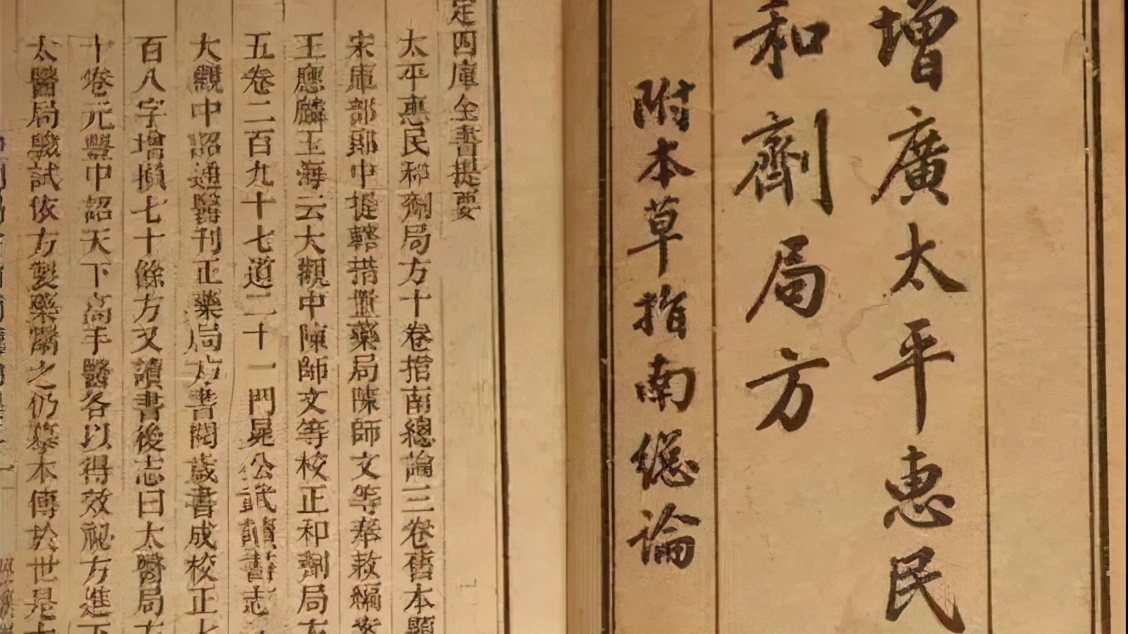 增廣太平惠民
和劑局方
附本草指南總論
定四庫全書提要
太平惠民和劑局方十卷指南總論三卷舊本題
宋庫部郎中提轄措置藥局陳師文等奉敕編案
王應麟玉海云大觀中陳師文等校正和劑局方
五卷二百九十七道二十一門晁公武讀書志
大觀中詔通醫刊正藥局方書閱歲書成校正七
百八字增損七十餘方又讀書後志曰太醫局方
十卷元豐中詔天下高手醫各以得效祕方進下
太醫局驗試依方製藥鬻之仍摹本傳於世是